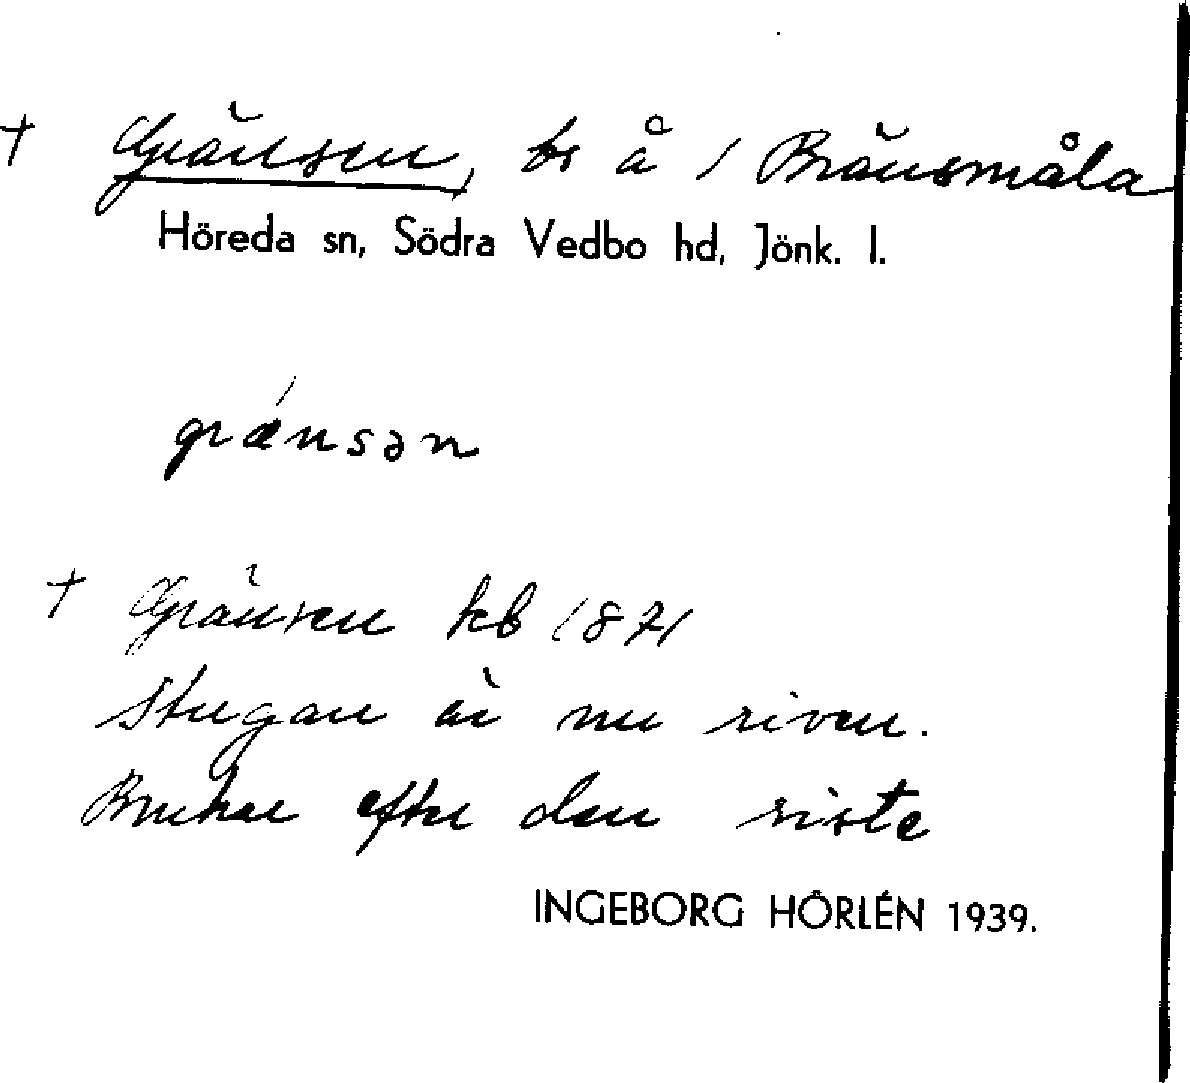 † Gränsen, bs å 1 Bränsmåla
Höreda sn, Södra Vedbo hd, Jönk. l.
grǽnsən
† Gränsen kb 1871
Stugan är nu riven.
efter den siste
INGEBORG HÖRLÉN 1939.